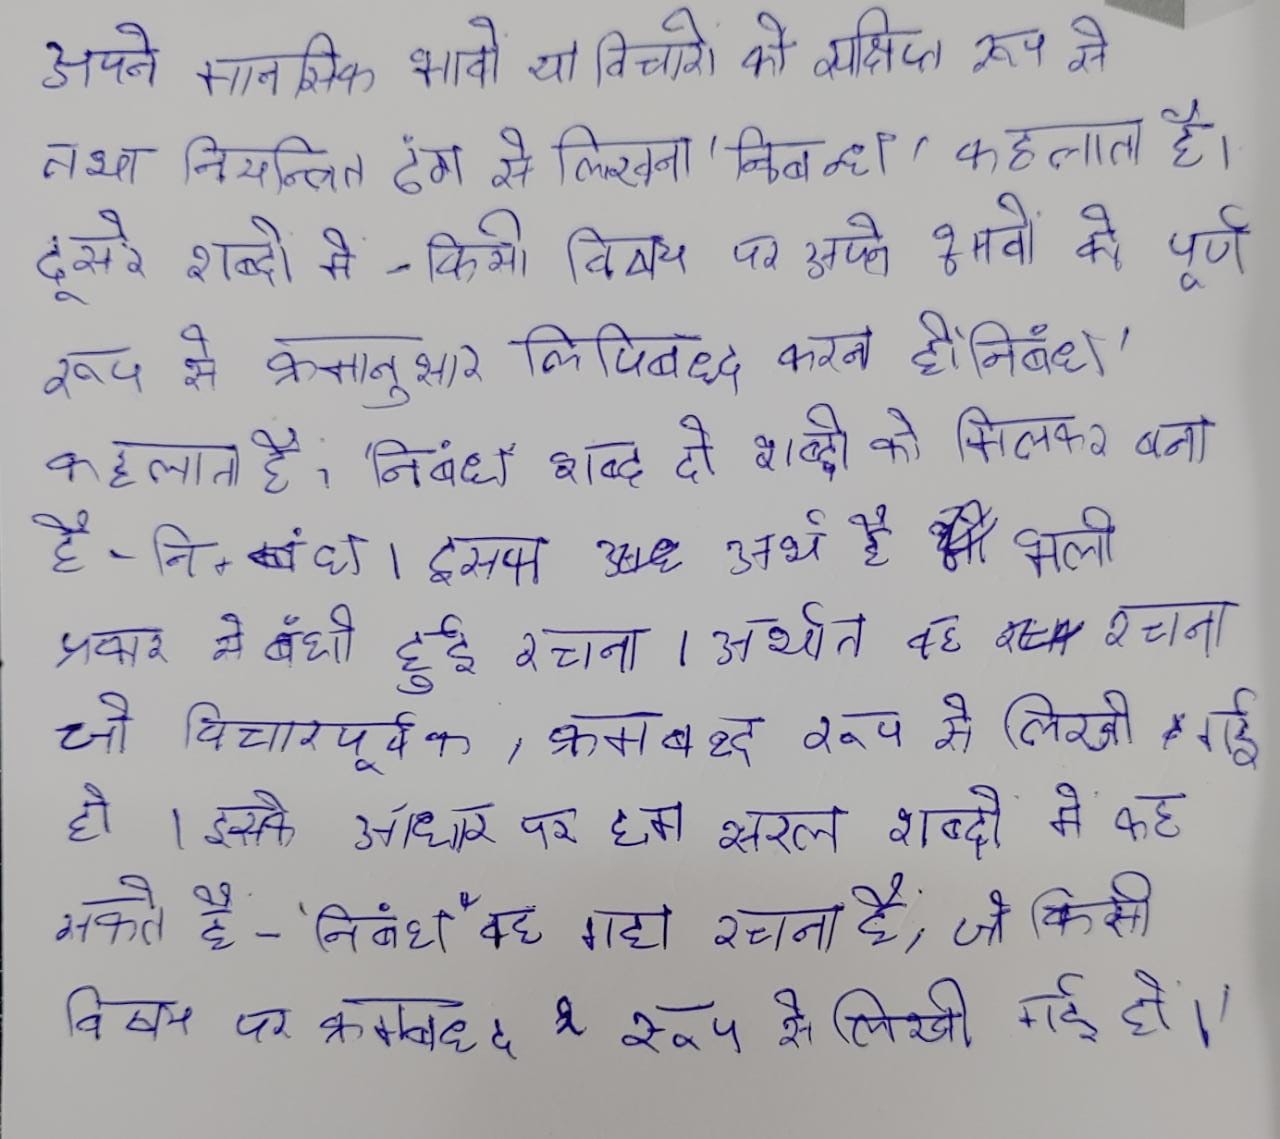 अपने मानसिक भावों या विचारों को संक्षिप्त रूप से
तथा नियन्त्रित ढंग से लिखना 'निबन्ध' कहलाता है।
दूसरे शब्दों में - किसी विषय पर अपने भावों को पूर्ण
रूप से क्रमानुसार लिपिबध्द करना ही 'निबंध'
कहलाता है। 'निबंध' शब्द दो शब्दों को मिलकर बना
है - नि + बंध। इसका अर्थ है भली
प्रकार से बंधी हुई रचना। अर्थात वह रचना
जो विचारपूर्वक, क्रमबध्द रूप से लिखी गई
हो। इसके आधार पर हम सरल शब्दों में कह
सकते हैं - 'निबंध' वह गद्य रचना है, जो किसी
विषय पर क्रमबध्द रूप से लिखी गई हो।'